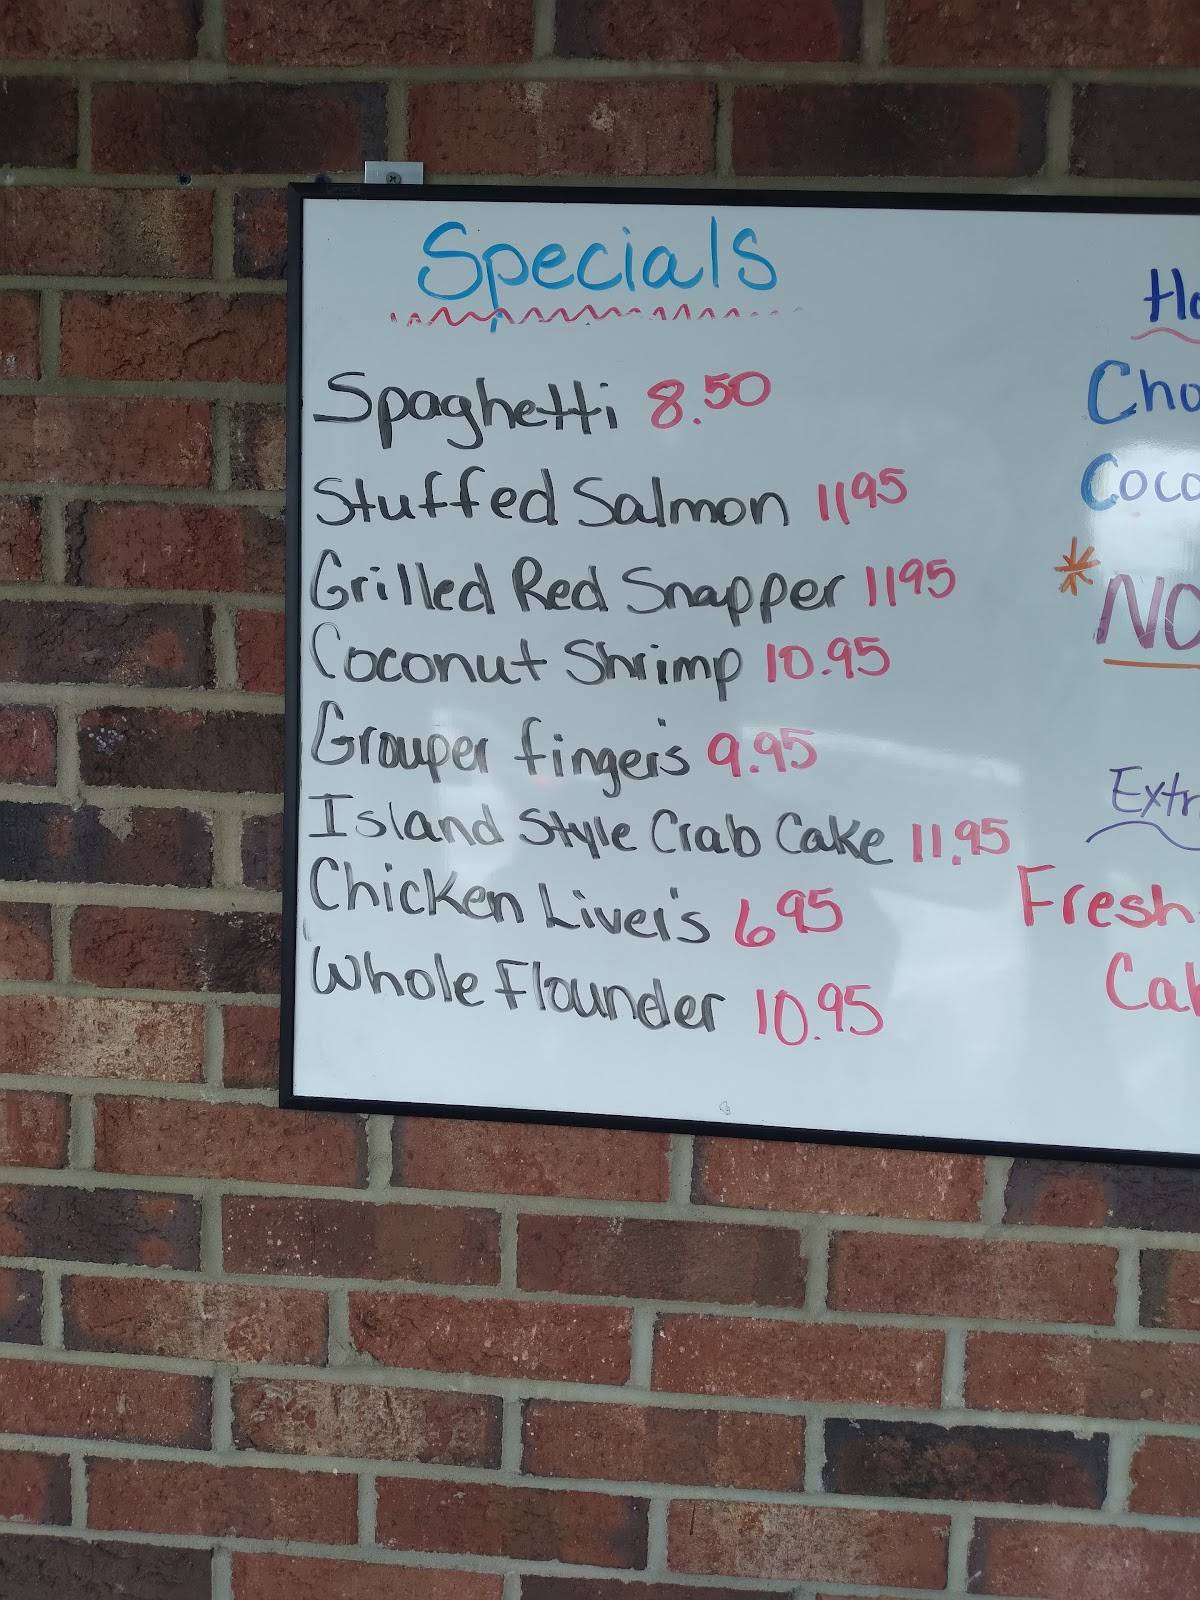 Specials
Spaghetti 8.50
Stuffed Salmon 11 95
Grilled Red Snapper 11 95
Coconut Shrimp 10.95
Grouper finger's 9.95
Island Style Crab Cake 11.95
Chicken Liver's 6 95
Whole Flounder 10.95
*NO
Fresh